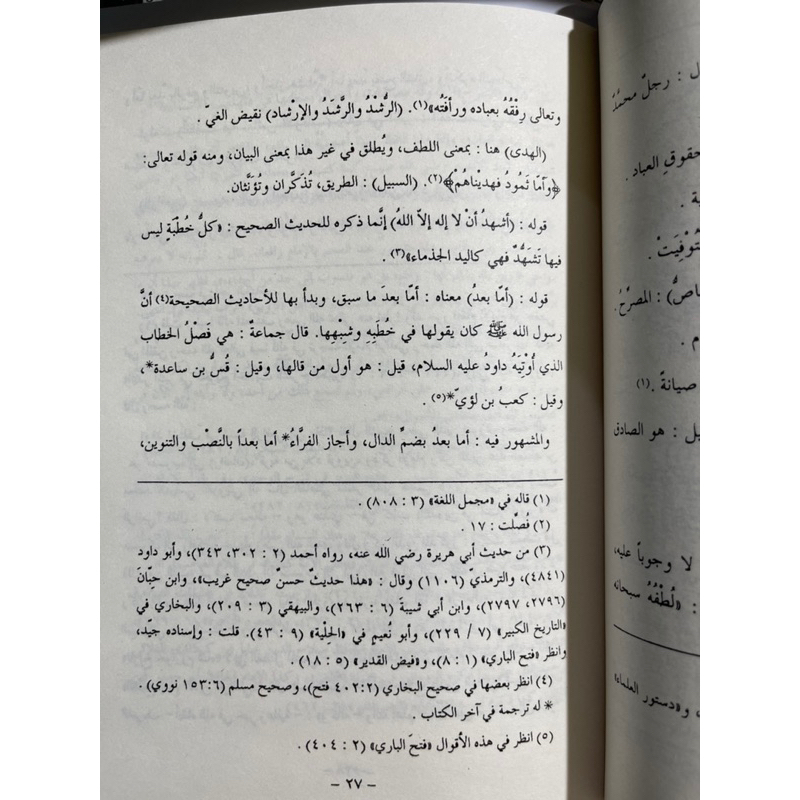 وتعالى رِفْقُهُ بعباده ورأفَتُه»(١). (الرُّشْدُ والرَّشَدُ والإرْشاد) نقيض الغيّ .
(الهدى) هنا : بمعنى اللطف، ويُطلق في غير هذا بمعنى البيان، ومنه قوله تعالى:
﴿وأمّا ثَمُودُ فهديْناهُمْ﴾(٢). (السبيل) : الطريق، تُذَكَّران وتُؤَنَّثان.
قوله : (أشهدُ أنْ لا إله إلاّ اللهُ) إنَّما ذكره للحديث الصحيح : «كلُّ خُطْبَةٍ ليس
فيها تَشَهُّدٌ فهي كاليد الجذماء»(٣) .
قوله : (أمّا بعدُ) معناه : أمّا بعدَ ما سبق، وبدأ بها للأحاديث الصحيحة(٤) أنَّ
رسول الله ﷺ كان يقولها في خُطَبِهِ وشِبْهِها. قال جماعةٌ : هي فَصْلُ الخطاب
الذي أُوْتِيَهُ داودُ عليه السلام، قيل : هو أول من قالها، وقيل : قُسُّ بن ساعدة*،
وقيل : كعبُ بن لؤيّ*(٥) .
والمشهور فيه : أما بعدُ بضمِّ الدال، وأجاز الفرَّاءُ* أما بعداً بالنَّصْب والتنوين،
(١) قاله في «مجمل اللغة» (٣ : ٨٠٨) .
(٢) فُصِّلت : ١٧ .
(٣) من حديث أبي هريرة رضي الله عنه، رواه أحمد (٢ : ٣٠٢، ٣٤٣)، وأبو داود
(٤٨٤١)، والترمذيّ (١١٠٦) وقال : «هذا حديثٌ حسنٌ صحيح غريب»، وابن حِبّان
(٢٧٩٦، ٢٧٩٧)، وابن أبي شيبة (٦ : ٢٦٣)، والبيهقي (٣ : ٢٠٩)، والبخاري في
«التاريخ الكبير» (٧ / ٢٢٩)، وأبو نُعيم في «الحِلْية» (٩ : ٤٣). قلت : وإسناده جيّد،
وانظر «فتح الباري» (١ : ٨)، و«فيض القدير» (٥ : ١٨) .
(٤) انظر بعضها في صحيح البخاري (٢:‏٤٠٢ فتح)، وصحيح مسلم (٦:‏١٥٣ نووي) .
* له ترجمة في آخر الكتاب .
(٥) انظر في هذه الأقوال «فتحَ الباري» (٢ : ٤٠٤) .
- ٢٧ -
ل : رجلٌ محمُدٌ
حقوقِ العباد .
ية .
تُوفِيَتْ .
اصُ) : المصرّحُ .
م .
صيانةً .(١)
يل : هو الصادق
لا وجوباً عليه،
: «لُطْفُهُ سبحانه
، و«دستور العلماء»